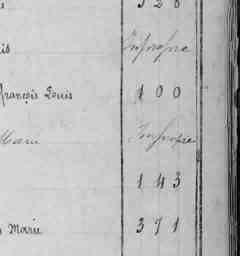 is Impropre
François Louis 1 0 0
Marie Impropre
1 4 3
Marie 3 7 1